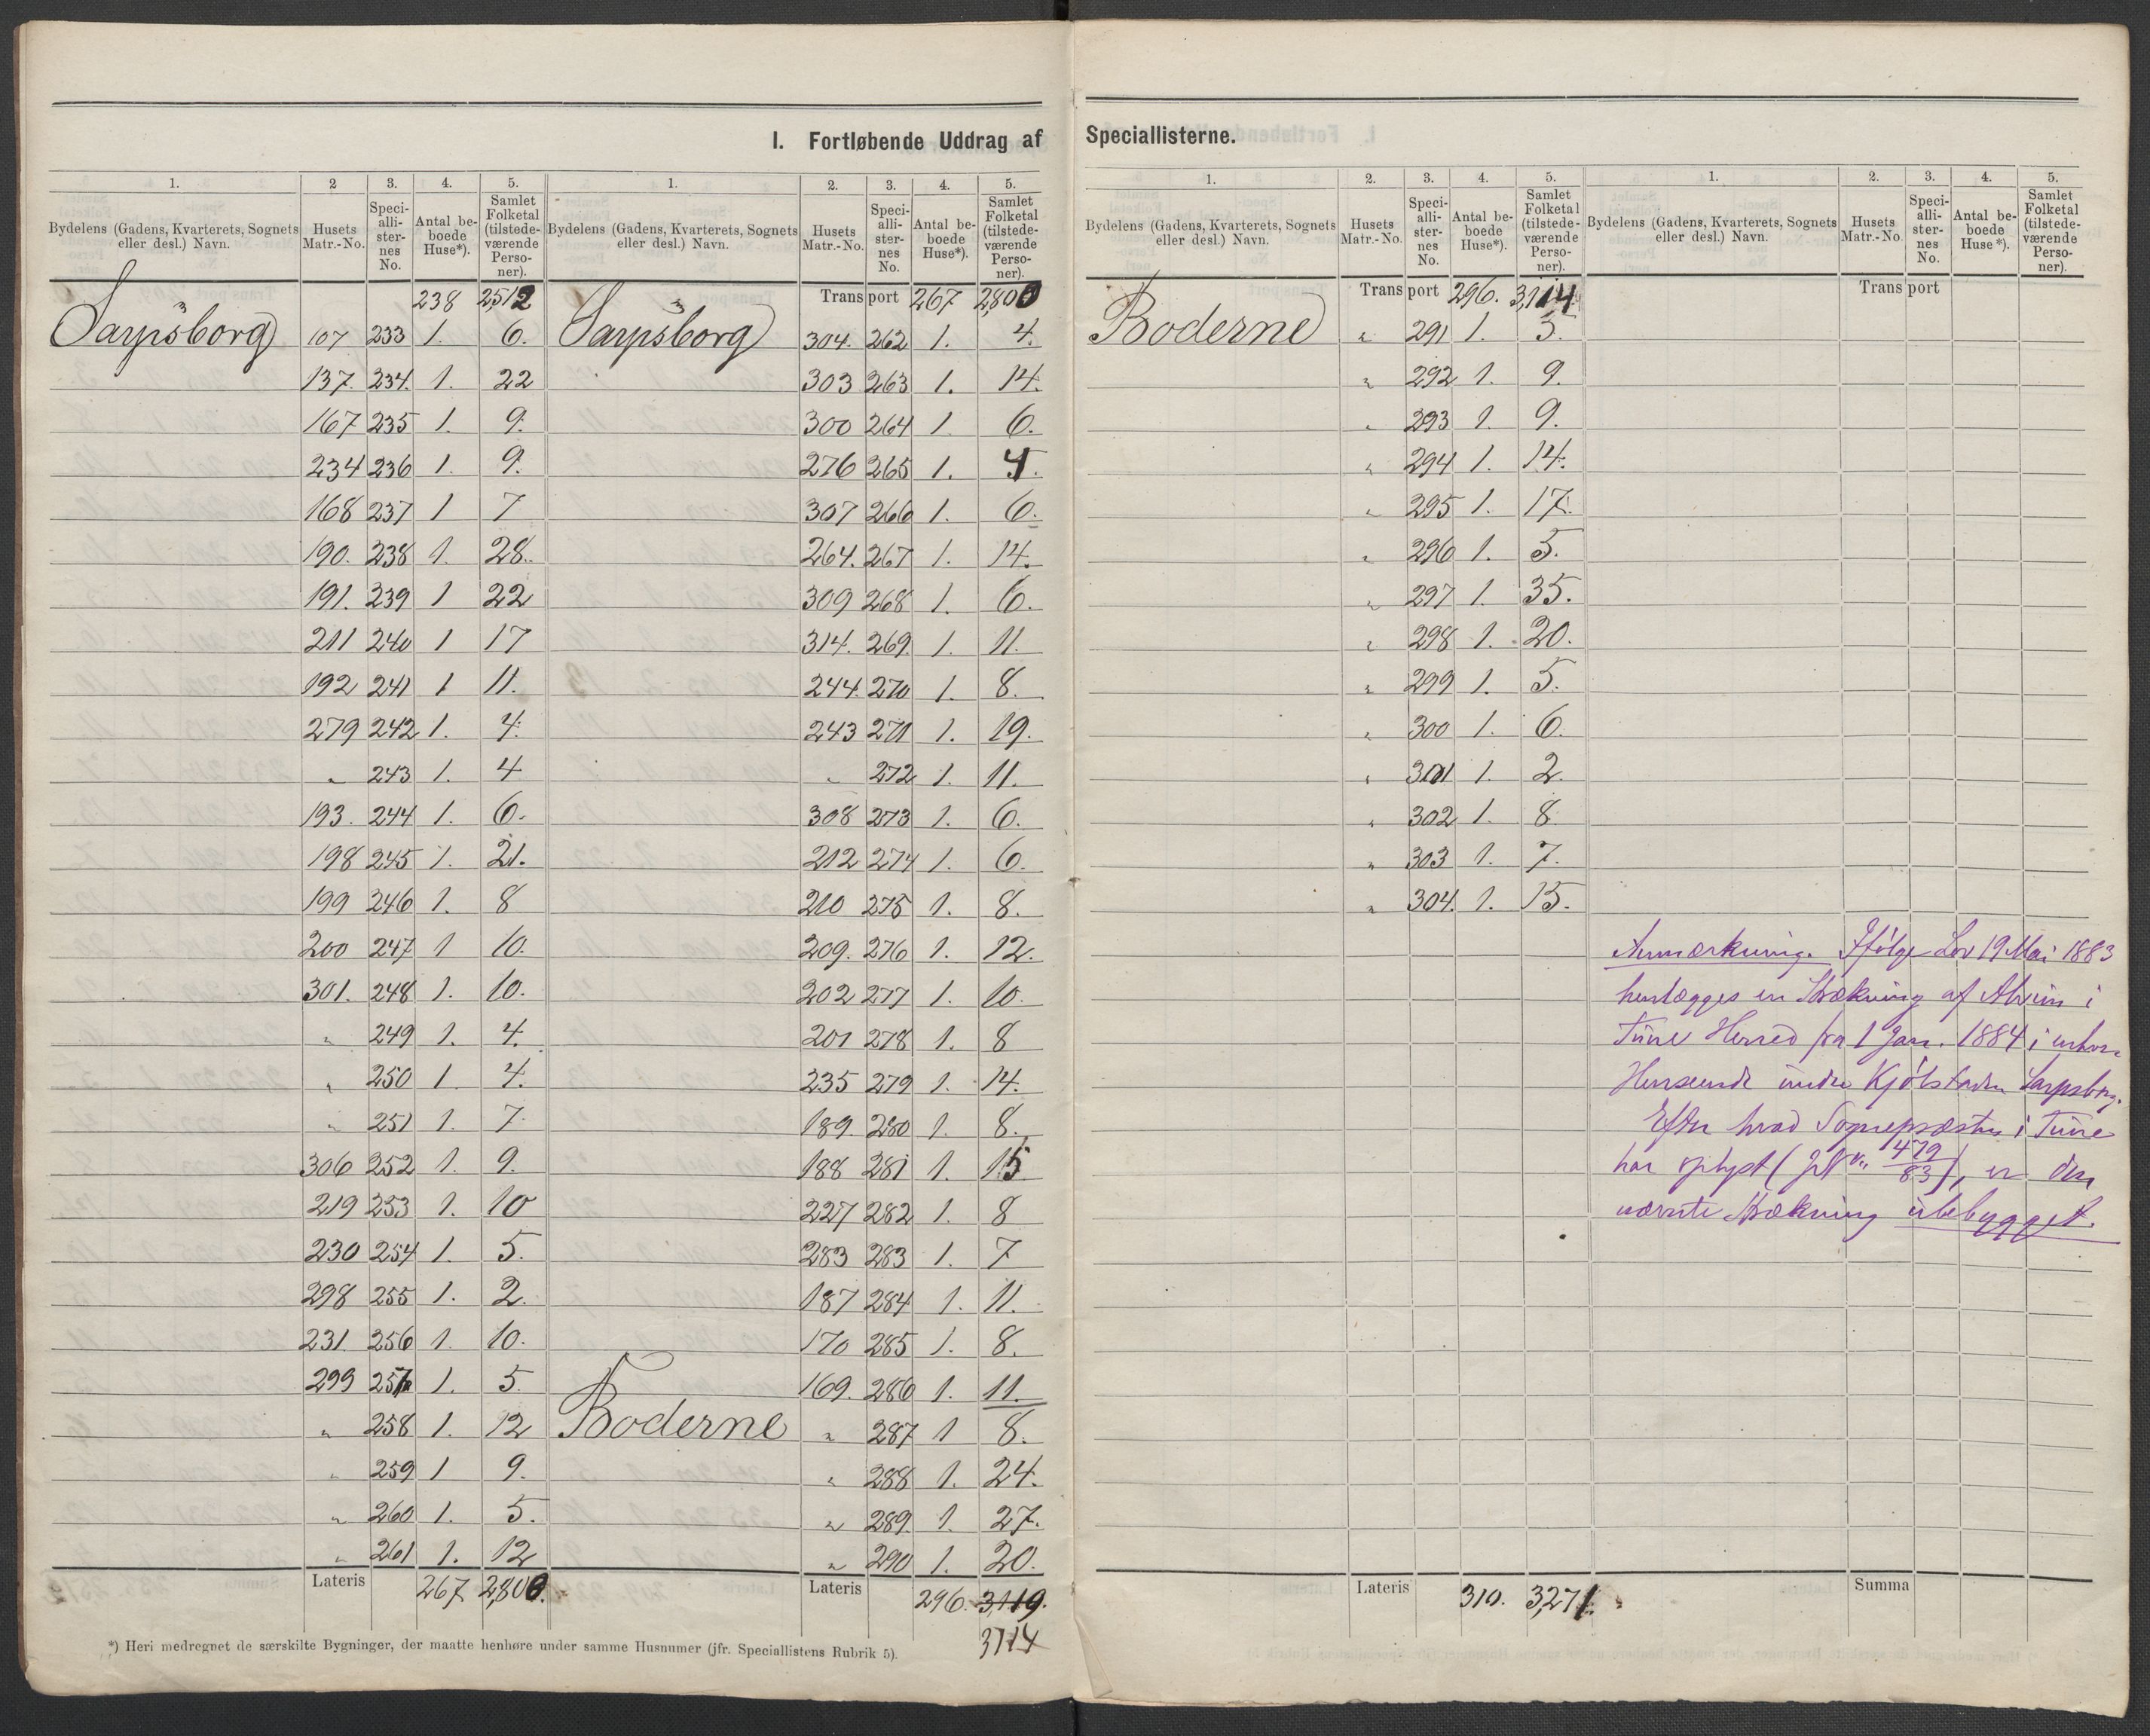 I. Fortløbende Uddrag af Speciallisterne.
1. 2 3. 4. 5. 1. 2. 3. 4. 5.
Bydelens (Gadens, Kvarterets, Sognets eller desl.) Navn. Husets Matr.-No. Speciallisternes No. Antal beboede Huse*). Samlet Folketal (tilstedeværende Personer). Bydelens (Gadens, Kvarterets, Sognets eller desl.) Navn. Husets Matr.-No. Speciallisternes No. Antal beboede Huse*). Samlet Folketal (tilstedeværende Personer).
238 2512
Sarpsborg 107 233 1. 6.
137. 234. 1. 22
167 235 1. 9.
234 236 1. 9.
168 237 1 7
190. 238 1. 28.
191. 239 1 22
211 240 1 17
192 241 1 11.
279 242 1. 4.
" 243 1. 4
193. 244 1. 6.
198 245 1. 21.
199 246 1. 8
200 247 1 10.
301. 248 1. 10.
" 249 1. 4.
" 250 1. 4.
" 251 1. 7.
306 252 1. 9.
219 253 1. 10
230 254 1. 5.
298 255 1. 2.
231. 256 1. 10.
299 257 1. 5.
" 258 1. 12
" 259 1 9.
" 260 1. 5.
" 261 1. 12
Lateris 267 2,800.
Transport 267 2,800
Sarpsborg 304. 262 1. 4.
303 263 1. 14.
300 264 1. 6.
276 265 1. 4.
307 266 1. 6.
264. 267 1. 14.
309 268 1. 6.
314. 269. 1. 11.
244. 270 1. 8.
243 271 1. 19.
" 272 1. 11.
308 273 1. 6.
212 274 1. 6.
210 275 1. 8.
209. 276 1. 12.
202 277 1. 10.
201 278 1. 8
235 279 1. 14.
189. 280 1. 8.
188 281 1. 15
227 282 1. 8
283 283 1. 7
187 284 1. 11.
170 285 1. 8.
169. 286 1. 11.
Boderne " 287 1 8.
" 288 1. 24.
" 289. 1. 27.
" 290 1. 20.
Lateris 296. 3,119.
3114
*) Heri medregnet de særskilte Bygninger, der maatte henhøre under samme Husnumer (jfr. Speciallistens Rubrik 5).
1. 2. 3. 4. 5. 1. 2. 3. 4. 5.
Bydelens (Gadens, Kvarterets, Sognets eller desl.) Navn. Husets Matr.-No. Speciallisternes No. Antal beboede Huse*). Samlet Folketal (tilstedeværende Personer). Bydelens (Gadens, Kvarterets, Sognets eller desl.) Navn. Husets Matr.-No. Speciallisternes No. Antal beboede Huse*). Samlet Folketal (tilstedeværende Personer).
Transport 296. 3,114.
Boderne " 291 1. 5.
" 292 1. 9.
" 293 1. 9.
" 294 1. 14.
" 295 1. 17.
" 296 1. 5.
" 297 1. 35.
" 298 1. 20.
" 299 1. 5.
" 300 1. 6.
" 301 1. 2.
" 302 1. 8.
" 303 1. 7.
" 304. 1. 15.
Lateris 310. 3,271.
Transport
Anmærkning. Ifølge Lov 19 Mai 1883
henlægges en Strækning af Alvim i
Tune Herred fra 1 Jan. 1884 i enhver
Henseende under Kjøbstaden Sarpsborg.
Efter hvad Sognepræsten i Tune
har oplyst (Jnl. No. 479/83), er den
nævnte Strækning ubebygget.
Summa